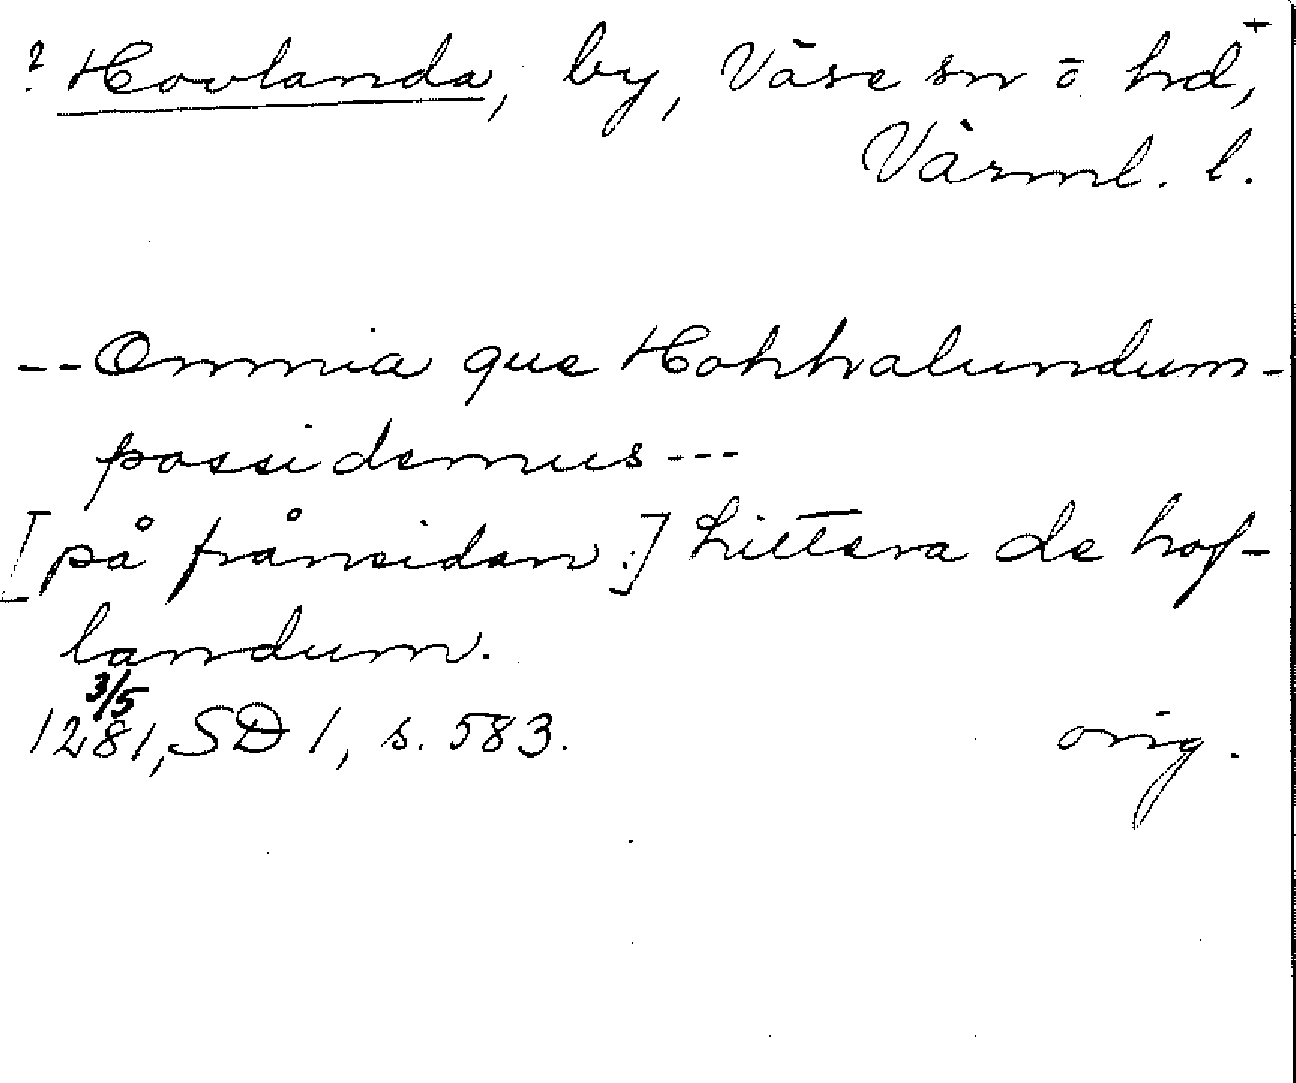 ? Hovlanda, by, Väse sn o hd,+
Värml. l.
--Omnia que Hohhalundum-
possidemus---
[på frånsidan:] Littera de hof-
landum.
3/5
1281, SD 1, s. 583. orig.